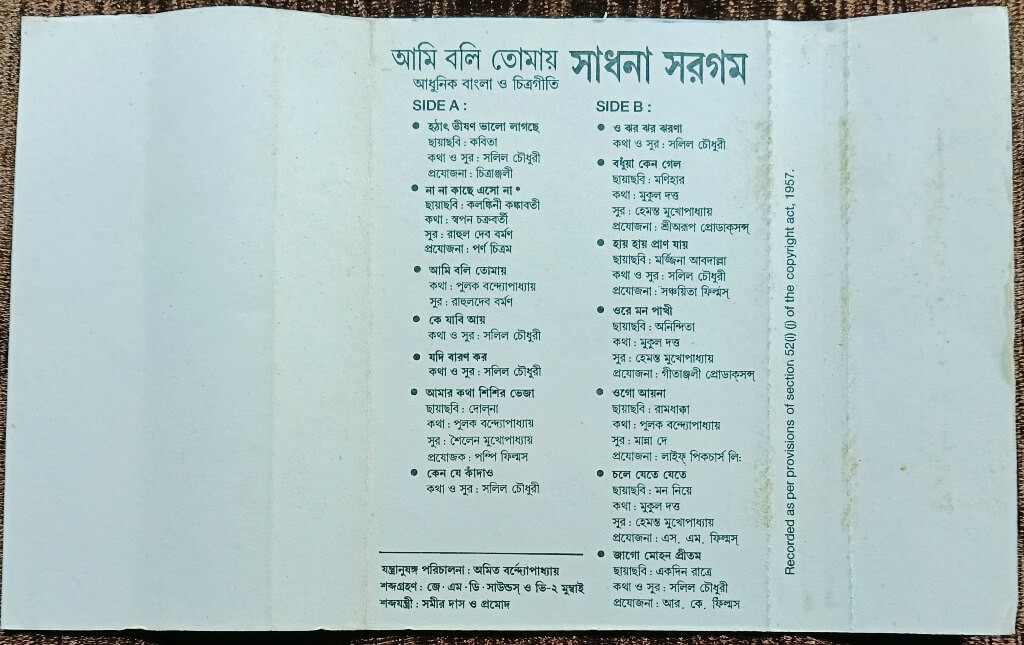 আমি বলি তোমায় সাধনা সরগম
আধুনিক বাংলা ও চিত্রগীতি
SIDE A :
● হঠাৎ ভীষণ ভালো লাগছে
ছায়াছবি : কবিতা
কথা ও সুর : সলিল চৌধুরী
প্রযোজনা : চিত্রাঞ্জলী
● না না কাছে এসো না *
ছায়াছবি : কলঙ্কিনী কঙ্কাবতী
কথা : স্বপন চক্রবর্তী
সুর : রাহুল দেব বর্মণ
প্রযোজনা : পর্ণ চিত্রম
● আমি বলি তোমায়
কথা : পুলক বন্দ্যোপাধ্যায়
সুর : রাহুলদেব বর্মণ
● কে যাবি আয়
কথা ও সুর : সলিল চৌধুরী
● যদি বারণ কর
কথা ও সুর : সলিল চৌধুরী
● আমার কথা শিশির ভেজা
ছায়াছবি : দোল্‌না
কথা : পুলক বন্দ্যোপাধ্যায়
সুর : শৈলেন মুখোপাধ্যায়
প্রযোজক : পম্পি ফিল্মস
● কেন যে কাঁদাও
কথা ও সুর : সলিল চৌধুরী
যন্ত্রানুষঙ্গ পরিচালনা : অমিত বন্দ্যোপাধ্যায়
শব্দগ্রহণ : জে · এম · ডি · সাউন্ডস্ ও ভি-২ মুম্বাই
শব্দযন্ত্রী : সমীর দাস ও প্রমোদ
SIDE B :
● ও ঝর ঝর ঝরণা
কথা ও সুর : সলিল চৌধুরী
● বধুঁয়া কেন গেল
ছায়াছবি : মণিহার
কথা : মুকুল দত্ত
সুর : হেমন্ত মুখোপাধ্যায়
প্রযোজনা : শ্রীঅরূপ প্রোডাক্‌সন্স্
● হায় হায় প্রাণ যায়
ছায়াছবি : মর্জ্জিনা আবদাল্লা
কথা ও সুর : সলিল চৌধুরী
প্রযোজনা : সঞ্চয়িতা ফিল্মস্
● ওরে মন পাখী
ছায়াছবি : অনিন্দিতা
কথা : মুকুল দত্ত
সুর : হেমন্ত মুখোপাধ্যায়
প্রযোজনা : গীতাঞ্জলী প্রোডাক্‌সন্স্
● ওগো আয়না
ছায়াছবি : রামধাক্কা
কথা : পুলক বন্দ্যোপাধ্যায়
সুর : মান্না দে
প্রযোজনা : লাইফ্ পিকচার্স লি:
● চলে যেতে যেতে
ছায়াছবি : মন নিয়ে
কথা : মুকুল দত্ত
সুর : হেমন্ত মুখোপাধ্যায়
প্রযোজনা : এস. এম. ফিল্মস্
● জাগো মোহন প্রীতম
ছায়াছবি : একদিন রাত্রে
কথা ও সুর : সলিল চৌধুরী
প্রযোজনা : আর. কে. ফিল্মস
Recorded as per provisions of section 52(i) (j) of the copyright act, 1957.